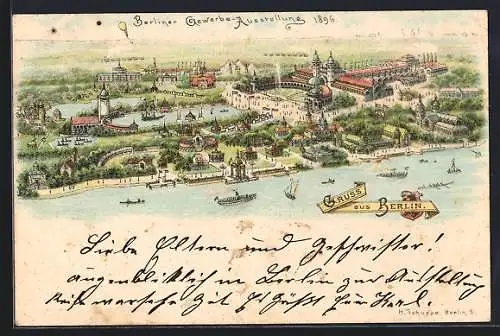 Berliner Gewerbe-Ausstellung 1896.
GRUSS
AUS BERLIN.
Liebe Eltern und Geschwister!
augenblicklich in Berlin zur Ausstellung
Gut Es Grüßt Euer Karl.
H. Schuppe. Berlin S.